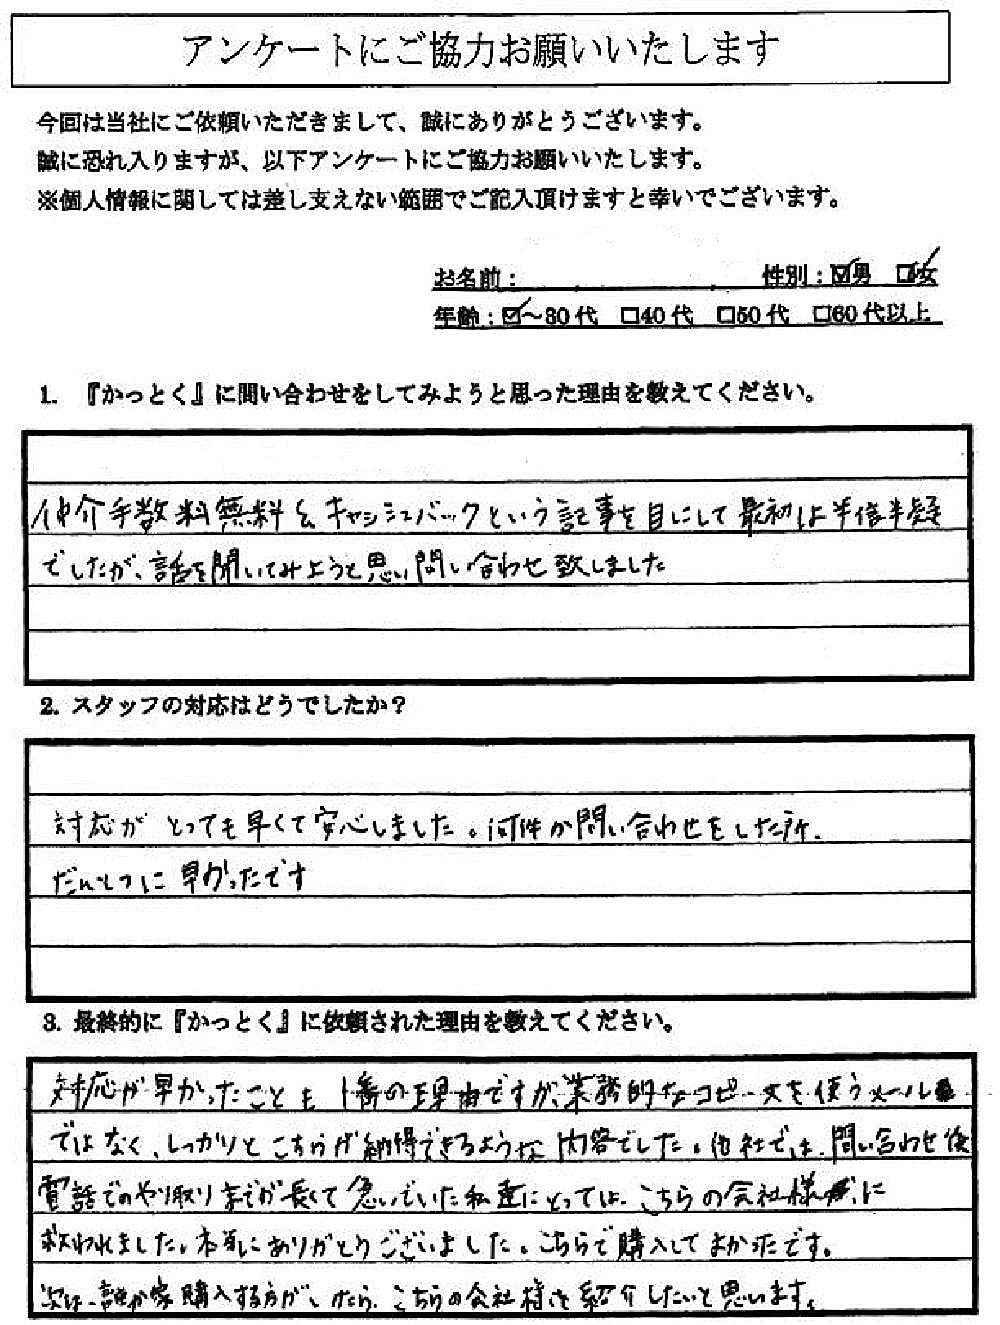 アンケートにご協力お願いいたします
今回は当社にご依頼いただきまして、誠にありがとうございます。
誠に恐れ入りますが、以下アンケートにご協力お願いいたします。
※個人情報に関しては差し支えない範囲でご記入頂けますと幸いでございます。
お名前： 性別：☑男 ☑女
年齢：☑～30代 □40代 □50代 □60代以上
1. 『かっとく』に問い合わせをしてみようと思った理由を教えてください。
仲介手数料無料&キャッシュバックという記事を目にして最初は半信半疑
でしたが、話を聞いてみようと思い問い合わせ致しました
2. スタッフの対応はどうでしたか？
対応がとっても早くて安心しました。何件か問い合わせをした所、
だんとつに早かったです
3. 最終的に『かっとく』に依頼された理由を教えてください。
対応が早かったことも1番の理由ですが、業務的なコピー文を使うメール
ではなく、しっかりとこちらが納得できるような内容でした。他社では、問い合わせ後
電話でのやり取りまでが長くて急いでいた私達にとっては、こちらの会社様に
救われました。本当にありがとうございました。こちらで購入してよかったです。
次は、誰か家購入する方がいたら、こちらの会社様を紹介したいと思います。